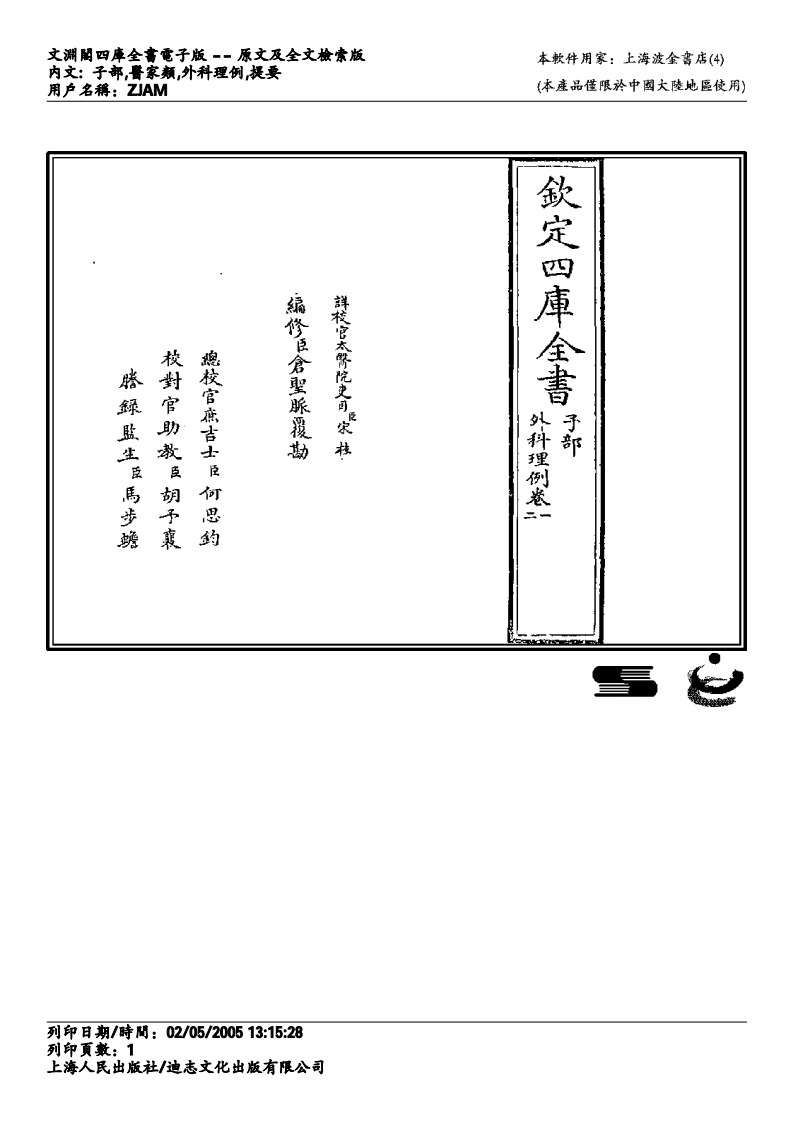 文淵閣四庫全書電子版 -- 原文及全文檢索版
內文: 子部,醫家類,外科理例,提要
用戶名稱: ZJAM
本軟件用家: 上海波金書店(4)
(本產品僅限於中國大陸地區使用)
欽定四庫全書
子部
外科理例卷一二
詳校官太醫院吏目臣宋桂
編修臣倉聖脈覆勘
總校官庶吉士臣何思鈞
校對官助教臣胡予襄
謄錄監生臣馬步蟾
列印日期/時間: 02/05/2005 13:15:28
列印頁數: 1
上海人民出版社/迪志文化出版有限公司